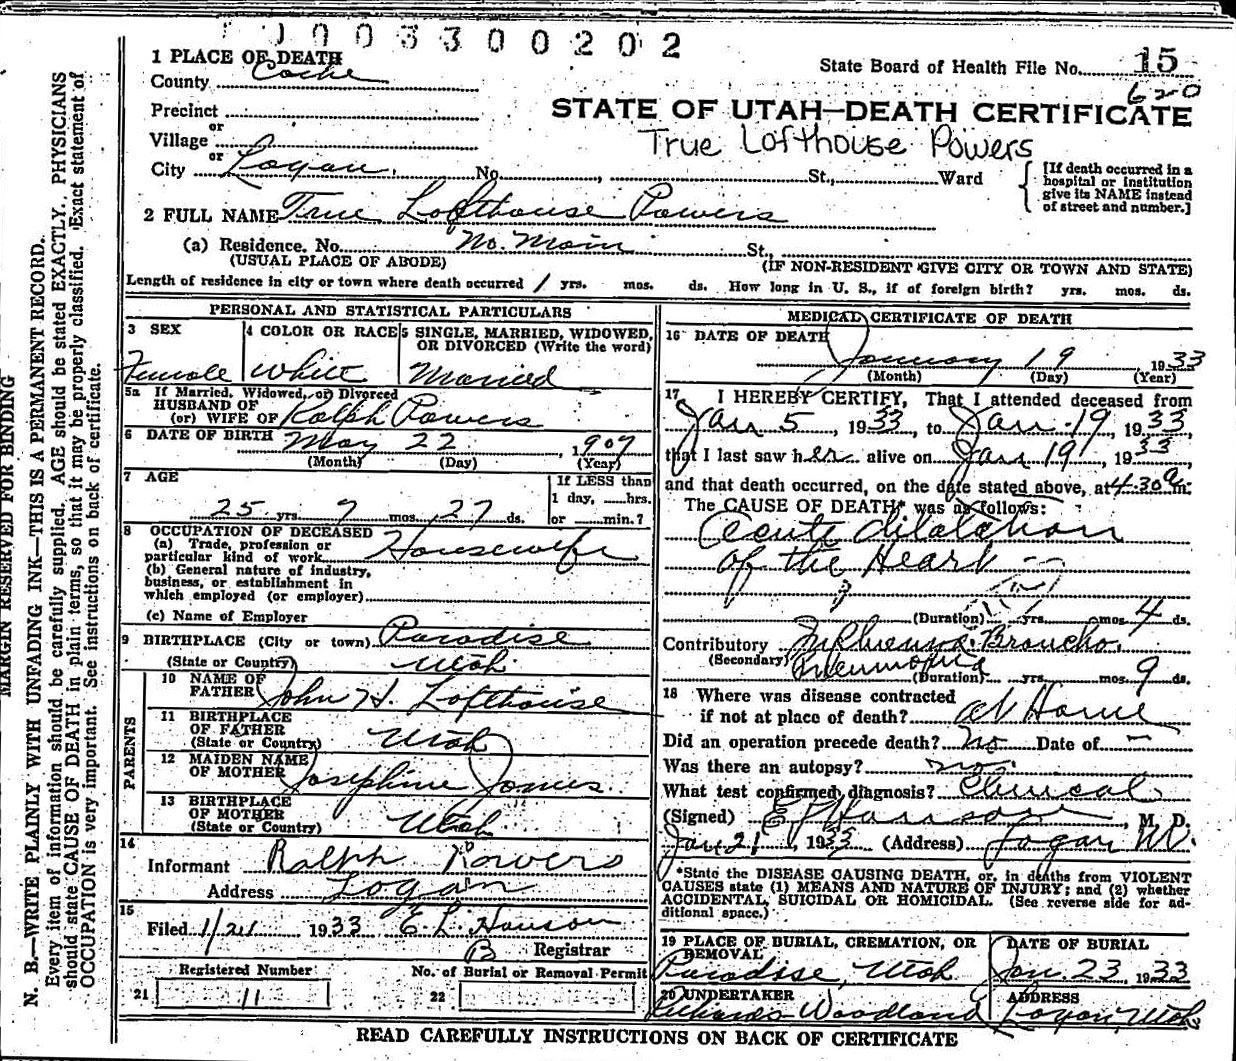 1003300202
1 PLACE OF DEATH
County Cache
State Board of Health File No. 15
620
Precinct
or
Village
STATE OF UTAH—DEATH CERTIFICATE
True Lofthouse Powers
or
City Logan. No. , St., Ward
[If death occurred in a
hospital or institution
give its NAME instead
of street and number.]
2 FULL NAME True Lofthouse Powers
(a) Residence. No. No. Main St.
(USUAL PLACE OF ABODE) (IF NON-RESIDENT GIVE CITY OR TOWN AND STATE)
Length of residence in city or town where death occurred 1 yrs. mos. ds. How long in U. S., if of foreign birth? yrs. mos. ds.
PERSONAL AND STATISTICAL PARTICULARS
3 SEX
Female
4 COLOR OR RACE
White
5 SINGLE, MARRIED, WIDOWED,
OR DIVORCED (Write the word)
Married
5a If Married, Widowed, or Divorced
HUSBAND OF
(or) WIFE OF Ralph Powers
6 DATE OF BIRTH May 22, 1907
(Month) (Day) (Year)
7 AGE
25 yrs. 7 mos. 27 ds.
If LESS than
1 day, hrs.
or min.?
8 OCCUPATION OF DECEASED
(a) Trade, profession or
particular kind of work Housewife
(b) General nature of industry,
business, or establishment in
which employed (or employer)
(c) Name of Employer
9 BIRTHPLACE (City or town) Paradise
(State or Country) Utah.
PARENTS
10 NAME OF
FATHER John H. Lofthouse
11 BIRTHPLACE
OF FATHER
(State or Country) Utah
12 MAIDEN NAME
OF MOTHER Josephine James.
13 BIRTHPLACE
OF MOTHER
(State or Country) Utah.
14
Informant Ralph Powers
Address Logan
15
Filed 1/21 1933 E. L. Hanson
Registrar
Registered Number
21 11
No. of Burial or Removal Permit
22
MEDICAL CERTIFICATE OF DEATH
16 DATE OF DEATH
January 19 1933
(Month) (Day) (Year)
17 I HEREBY CERTIFY, That I attended deceased from
Jan 5, 1933, to Jan. 19, 1933,
that I last saw her alive on Jan 19, 1933,
and that death occurred, on the date stated above, at 4:30 a m.
The CAUSE OF DEATH* was as follows:
Acute dilatation
of the Heart
(Duration) yrs. mos. 4 ds.
Contributory Influenza. Broncho.
(Secondary) Pneumonia
(Duration) yrs. mos. 9 ds.
18 Where was disease contracted
if not at place of death? at Home
Did an operation precede death? No Date of —
Was there an autopsy? no.
What test confirmed diagnosis? Clinical
(Signed) Hanson, M. D.
Jan 21, 1933 (Address) Logan Ut.
*State the DISEASE CAUSING DEATH, or, in deaths from VIOLENT
CAUSES state (1) MEANS AND NATURE OF INJURY; and (2) whether
ACCIDENTAL, SUICIDAL OR HOMICIDAL. (See reverse side for ad-
ditional space.)
19 PLACE OF BURIAL, CREMATION, OR
REMOVAL
Paradise, Utah
DATE OF BURIAL
Jan. 23, 1933
20 UNDERTAKER
Richards Woodland
ADDRESS
Logan, Utah
READ CAREFULLY INSTRUCTIONS ON BACK OF CERTIFICATE
MARGIN RESERVED FOR BINDING
N. B.—WRITE PLAINLY WITH UNFADING INK—THIS IS A PERMANENT RECORD.
Every item of information should be carefully supplied. AGE should be stated EXACTLY. PHYSICIANS
should state CAUSE OF DEATH in plain terms, so that it may be properly classified. Exact statement of
OCCUPATION is very important. See instructions on back of certificate.